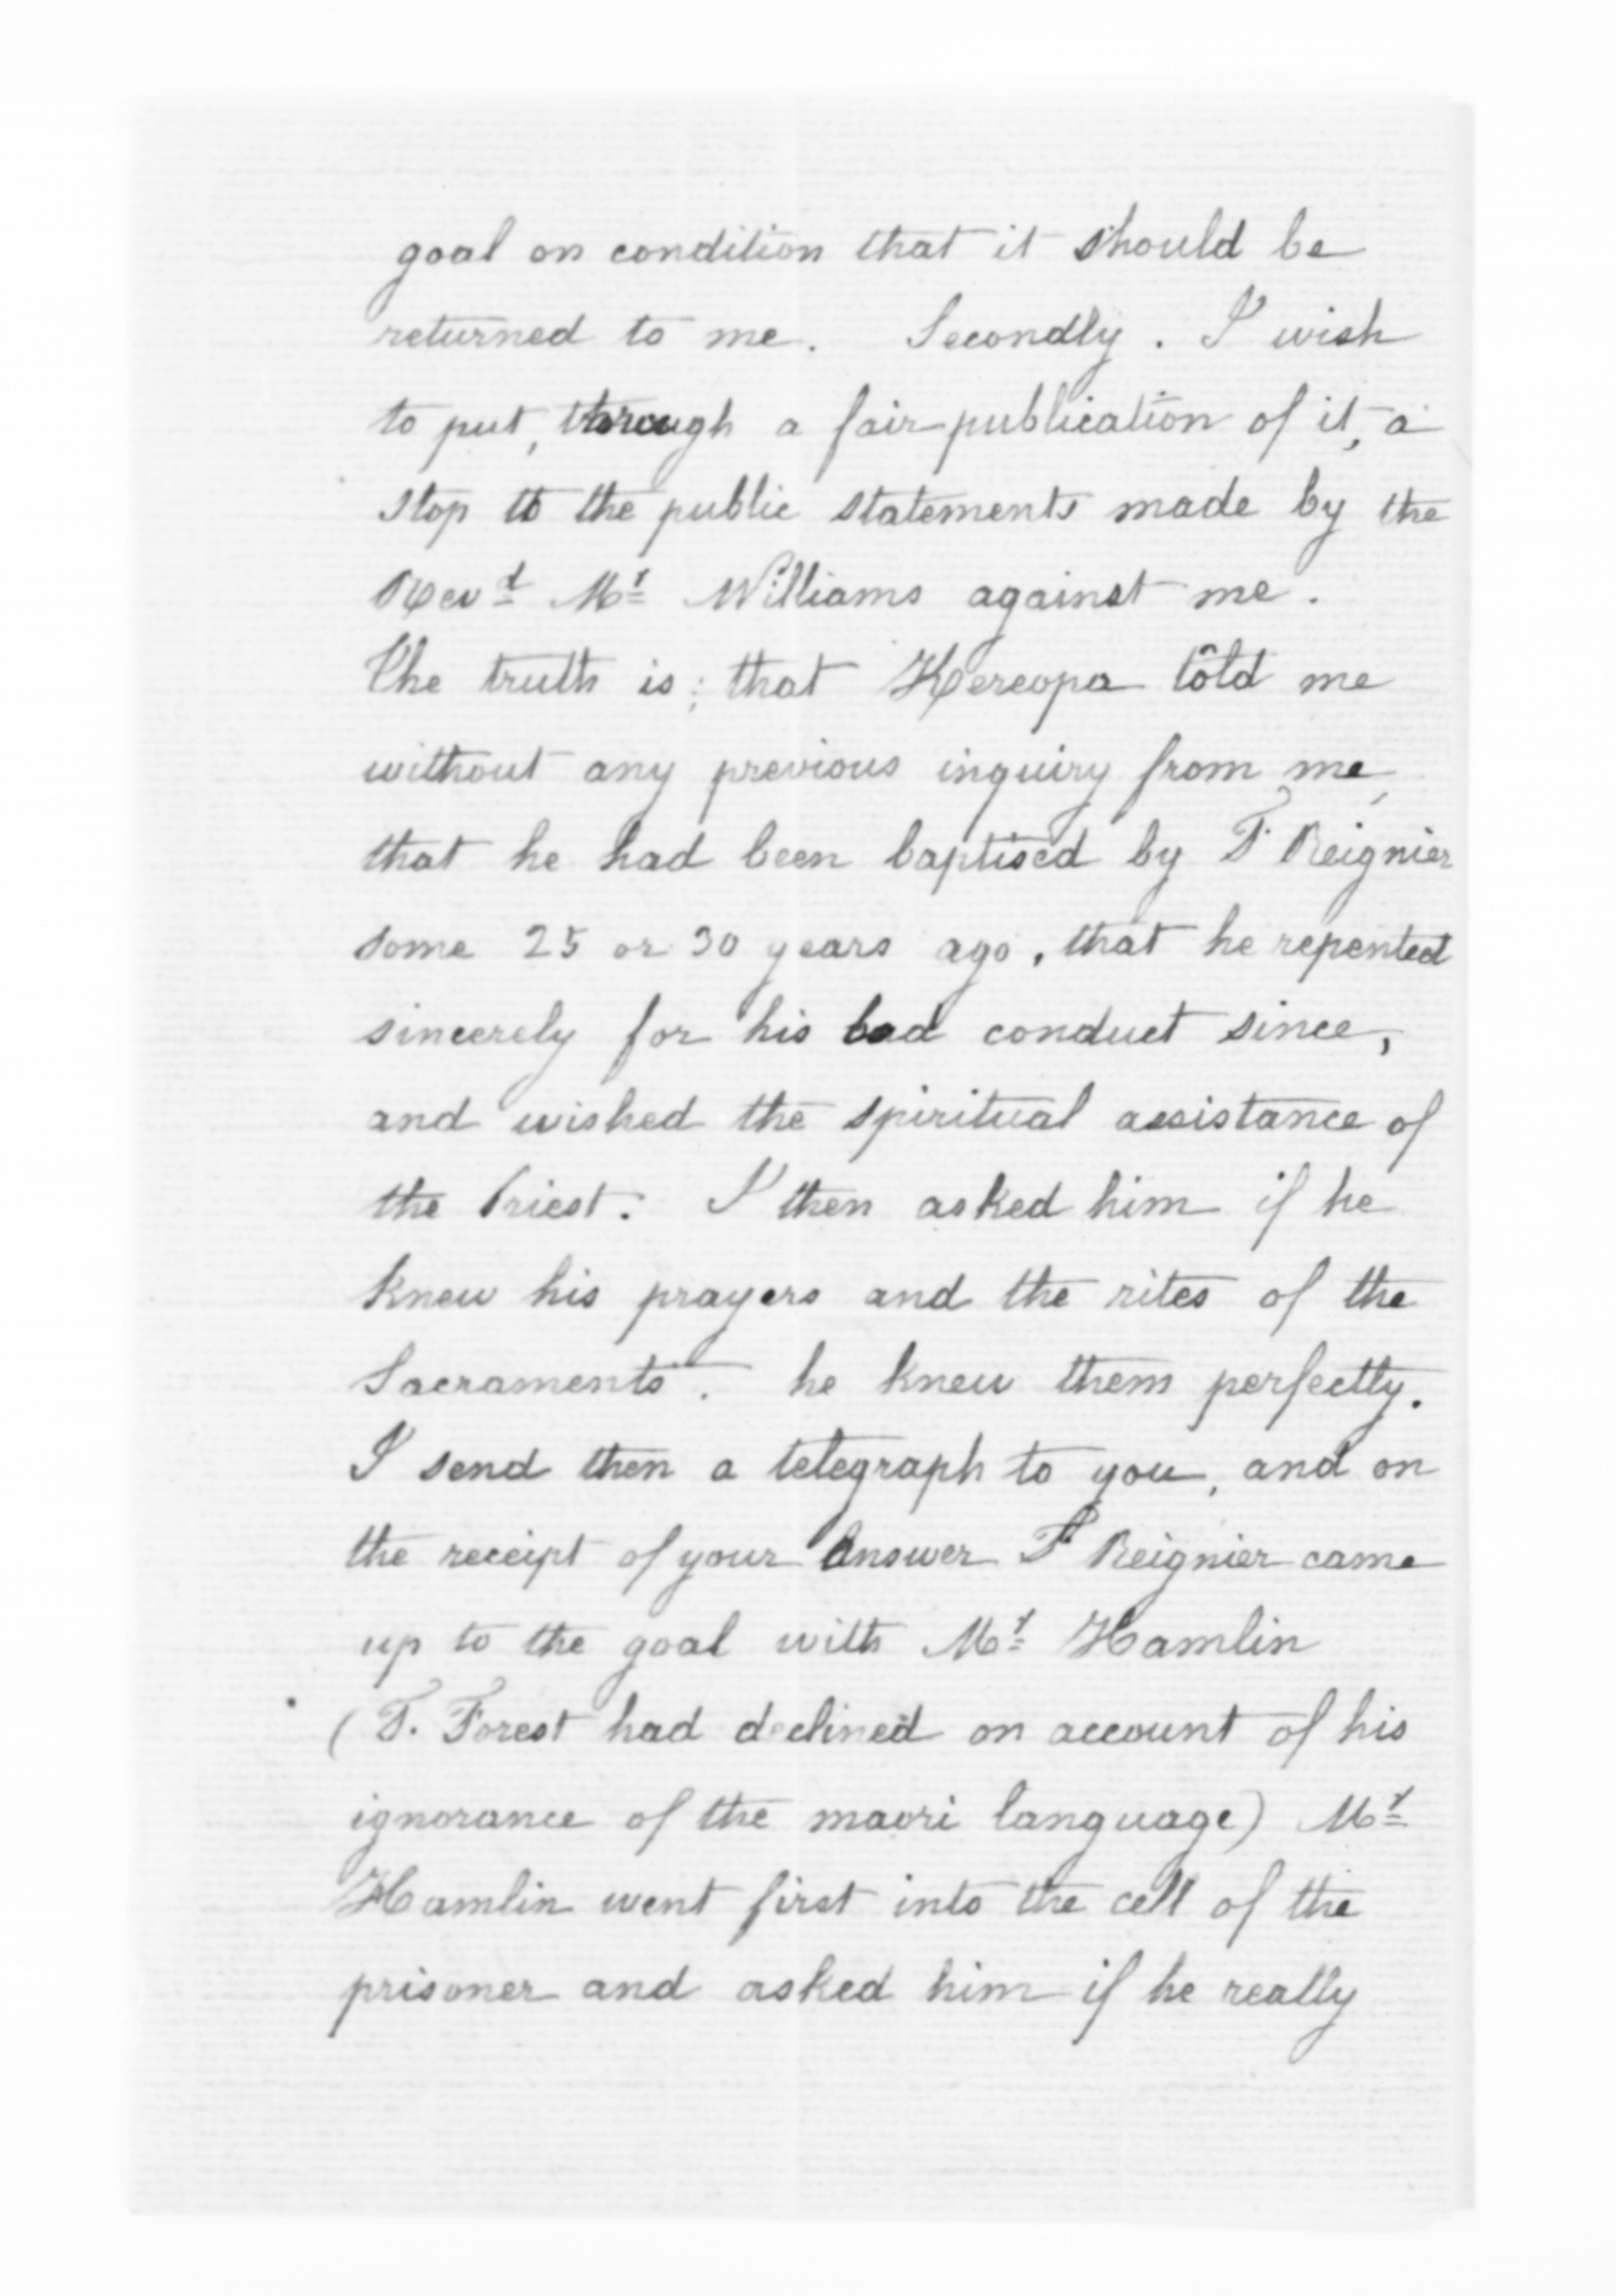 goal on condition that it should be
returned to me. Secondly. I wish
to put, through a fair publication of it, a
stop to the public statements made by the
Revd Mr Williams against me.
The truth is; that Kereopa told me
without any previous inquiry from me,
that he had been baptised by F. Reignier
some 25 or 30 years ago, that he repented
sincerely for his bad conduct since,
and wished the spiritual assistance of
the Priest. I then asked him if he
knew his prayers and the rites of the
Sacraments. he knew them perfectly.
I send then a telegraph to you, and on
the receipt of your Answer F Reignier came
up to the goal with Mr Hamlin
(F. Forest had declined on account of his
ignorance of the maori language) Mr
Hamlin went first into the cell of the
prisoner and asked him if he really